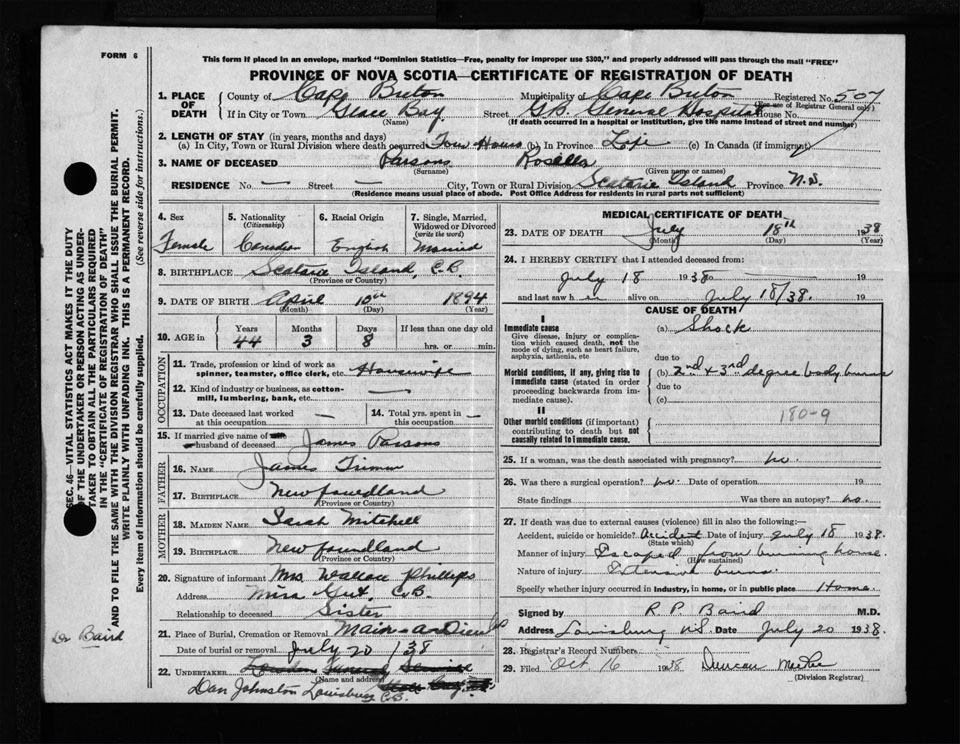 FORM 6
This form if placed in an envelope, marked "Dominion Statistics—Free, penalty for improper use $300," and properly addressed will pass through the mail "FREE"
PROVINCE OF NOVA SCOTIA—CERTIFICATE OF REGISTRATION OF DEATH
1. PLACE OF DEATH County of Cape Breton Municipality of Cape Breton Registered No. 507
(For use of Registrar General only)
If in City or Town Glace Bay Street G.B. General Hospital House No.
(Name) (If death occurred in a hospital or institution, give the name instead of street and number)
2. LENGTH OF STAY (in years, months and days)
(a) In City, Town or Rural Division where death occurred Four Hours (b) In Province Life (c) In Canada (if immigrant)
3. NAME OF DECEASED Parsons Rosella
(Surname) (Given name or names)
RESIDENCE No. — Street — City, Town or Rural Division Scatarie Island Province N.S.
(Residence means usual place of abode. Post Office Address for residents in rural parts not sufficient)
4. Sex 5. Nationality (Citizenship) 6. Racial Origin 7. Single, Married, Widowed or Divorced (write the word)
Female Canadian English Married
8. BIRTHPLACE Scatarie Island, C.B.
(Province or Country)
9. DATE OF BIRTH April 10th 1894
(Month) (Day) (Year)
10. AGE in Years Months Days If less than one day old
44 3 8 hrs. or min.
OCCUPATION
11. Trade, profession or kind of work as spinner, teamster, office clerk, etc. Housewife
12. Kind of industry or business, as cotton-mill, lumbering, bank, etc. —
13. Date deceased last worked at this occupation — 14. Total yrs. spent in this occupation —
15. If married give name of wife husband of deceased James Parsons
FATHER
16. NAME James Trimm
17. BIRTHPLACE Newfoundland
(Province or Country)
MOTHER
18. MAIDEN NAME Sarah Mitchell
19. BIRTHPLACE Newfoundland
(Province or Country)
20. Signature of informant Mrs Wallace Phillips
Address Mira Gut, C.B.
Relationship to deceased Sister
21. Place of Burial, Cremation or Removal Main-a-Dieu
Date of burial or removal July 20/38
22. UNDERTAKER
(Name and address)
Dan Johnston Louisburg C.B.
MEDICAL CERTIFICATE OF DEATH
23. DATE OF DEATH July 18th 1938
(Month) (Day) (Year)
24. I HEREBY CERTIFY that I attended deceased from:
July 18 1938 to 19
and last saw her alive on July 18/38. 19
CAUSE OF DEATH
I
Immediate cause (a) Shock
Give disease, injury or complication which caused death, not the mode of dying, such as heart failure, asphyxia, asthenia, etc
due to
Morbid conditions, if any, giving rise to immediate cause (stated in order proceeding backwards from immediate cause). (b) 2nd + 3rd degree body burns
due to
(c)
II
180-9
Other morbid conditions (if important) contributing to death but not causally related to immediate cause.
25. If a woman, was the death associated with pregnancy? no.
26. Was there a surgical operation? no. Date of operation 19
State findings Was there an autopsy? no.
27. If death was due to external causes (violence) fill in also the following:
Accident, suicide or homicide? Accident Date of injury July 18 1938
(State which)
Manner of injury Escaped from burning house.
(How sustained)
Nature of injury Extensive burns.
Specify whether injury occurred in industry, in home, or in public place Home.
Signed by R P Baird M.D.
Address Louisburg N.S. Date July 20 1938.
28. Registrar's Record Number
29. Filed Oct 16 1938 Duncan
(Division Registrar)
SEC. 46—VITAL STATISTICS ACT MAKES IT THE DUTY OF THE UNDERTAKER OR PERSON ACTING AS UNDERTAKER TO OBTAIN ALL THE PARTICULARS REQUIRED IN THE "CERTIFICATE OF REGISTRATION OF DEATH" AND TO FILE THE SAME WITH THE DIVISION REGISTRAR WHO SHALL ISSUE THE BURIAL PERMIT.
WRITE PLAINLY WITH UNFADING INK. THIS IS A PERMANENT RECORD.
Every item of Information should be carefully supplied. (See reverse side for instructions.)
Dr Baird